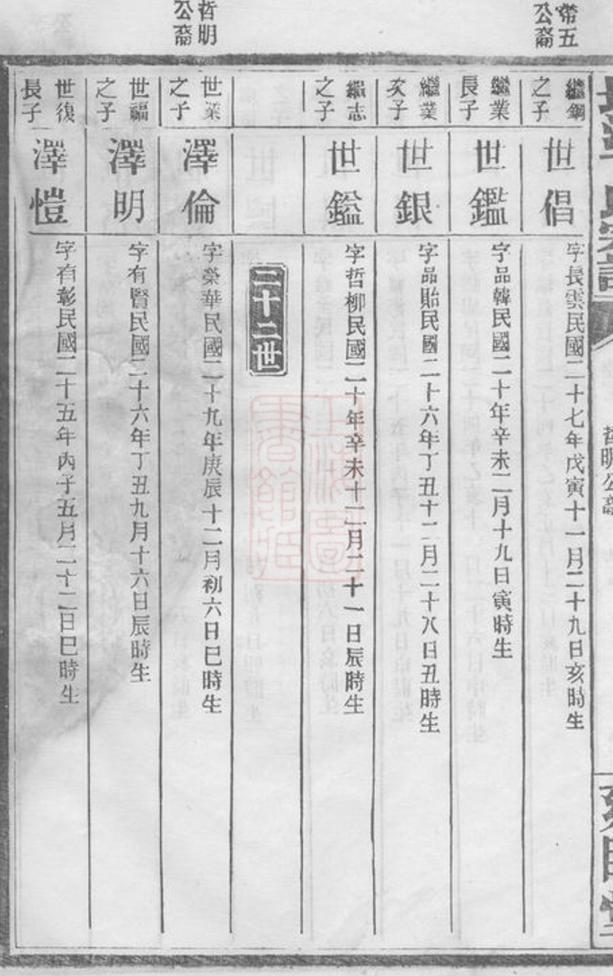 帝五
公裔
繼鋼
之子
世倡
字長雲民國二十七年戊寅十一月二十九日亥時生
繼業
長子
世鑑
字品韓民國二十年辛未二月十九日寅時生
繼業
次子
世銀
字品貽民國二十六年丁丑十二月二十八日丑時生
繼志
之子
世鎰
字哲柳民國二十年辛未十二月二十一日辰時生
二十二世
哲明
公裔
世業
之子
澤倫
字榮華民國二十九年庚辰十二月初六日巳時生
世福
之子
澤明
字有賢民國二十六年丁丑九月十六日辰時生
世復
長子
澤愷
字有彰民國二十五年丙子五月二十二日巳時生
哲明公裔